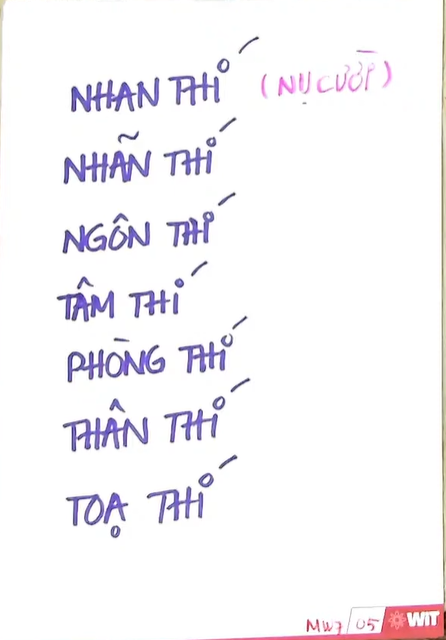 NHAN THÍ (NỤ CƯỜI)
NHÃN THÍ
NGÔN THÍ
TÂM THÍ
PHÒNG THÍ
THÂN THÍ
TOẠ THÍ
MW7 05 WIT